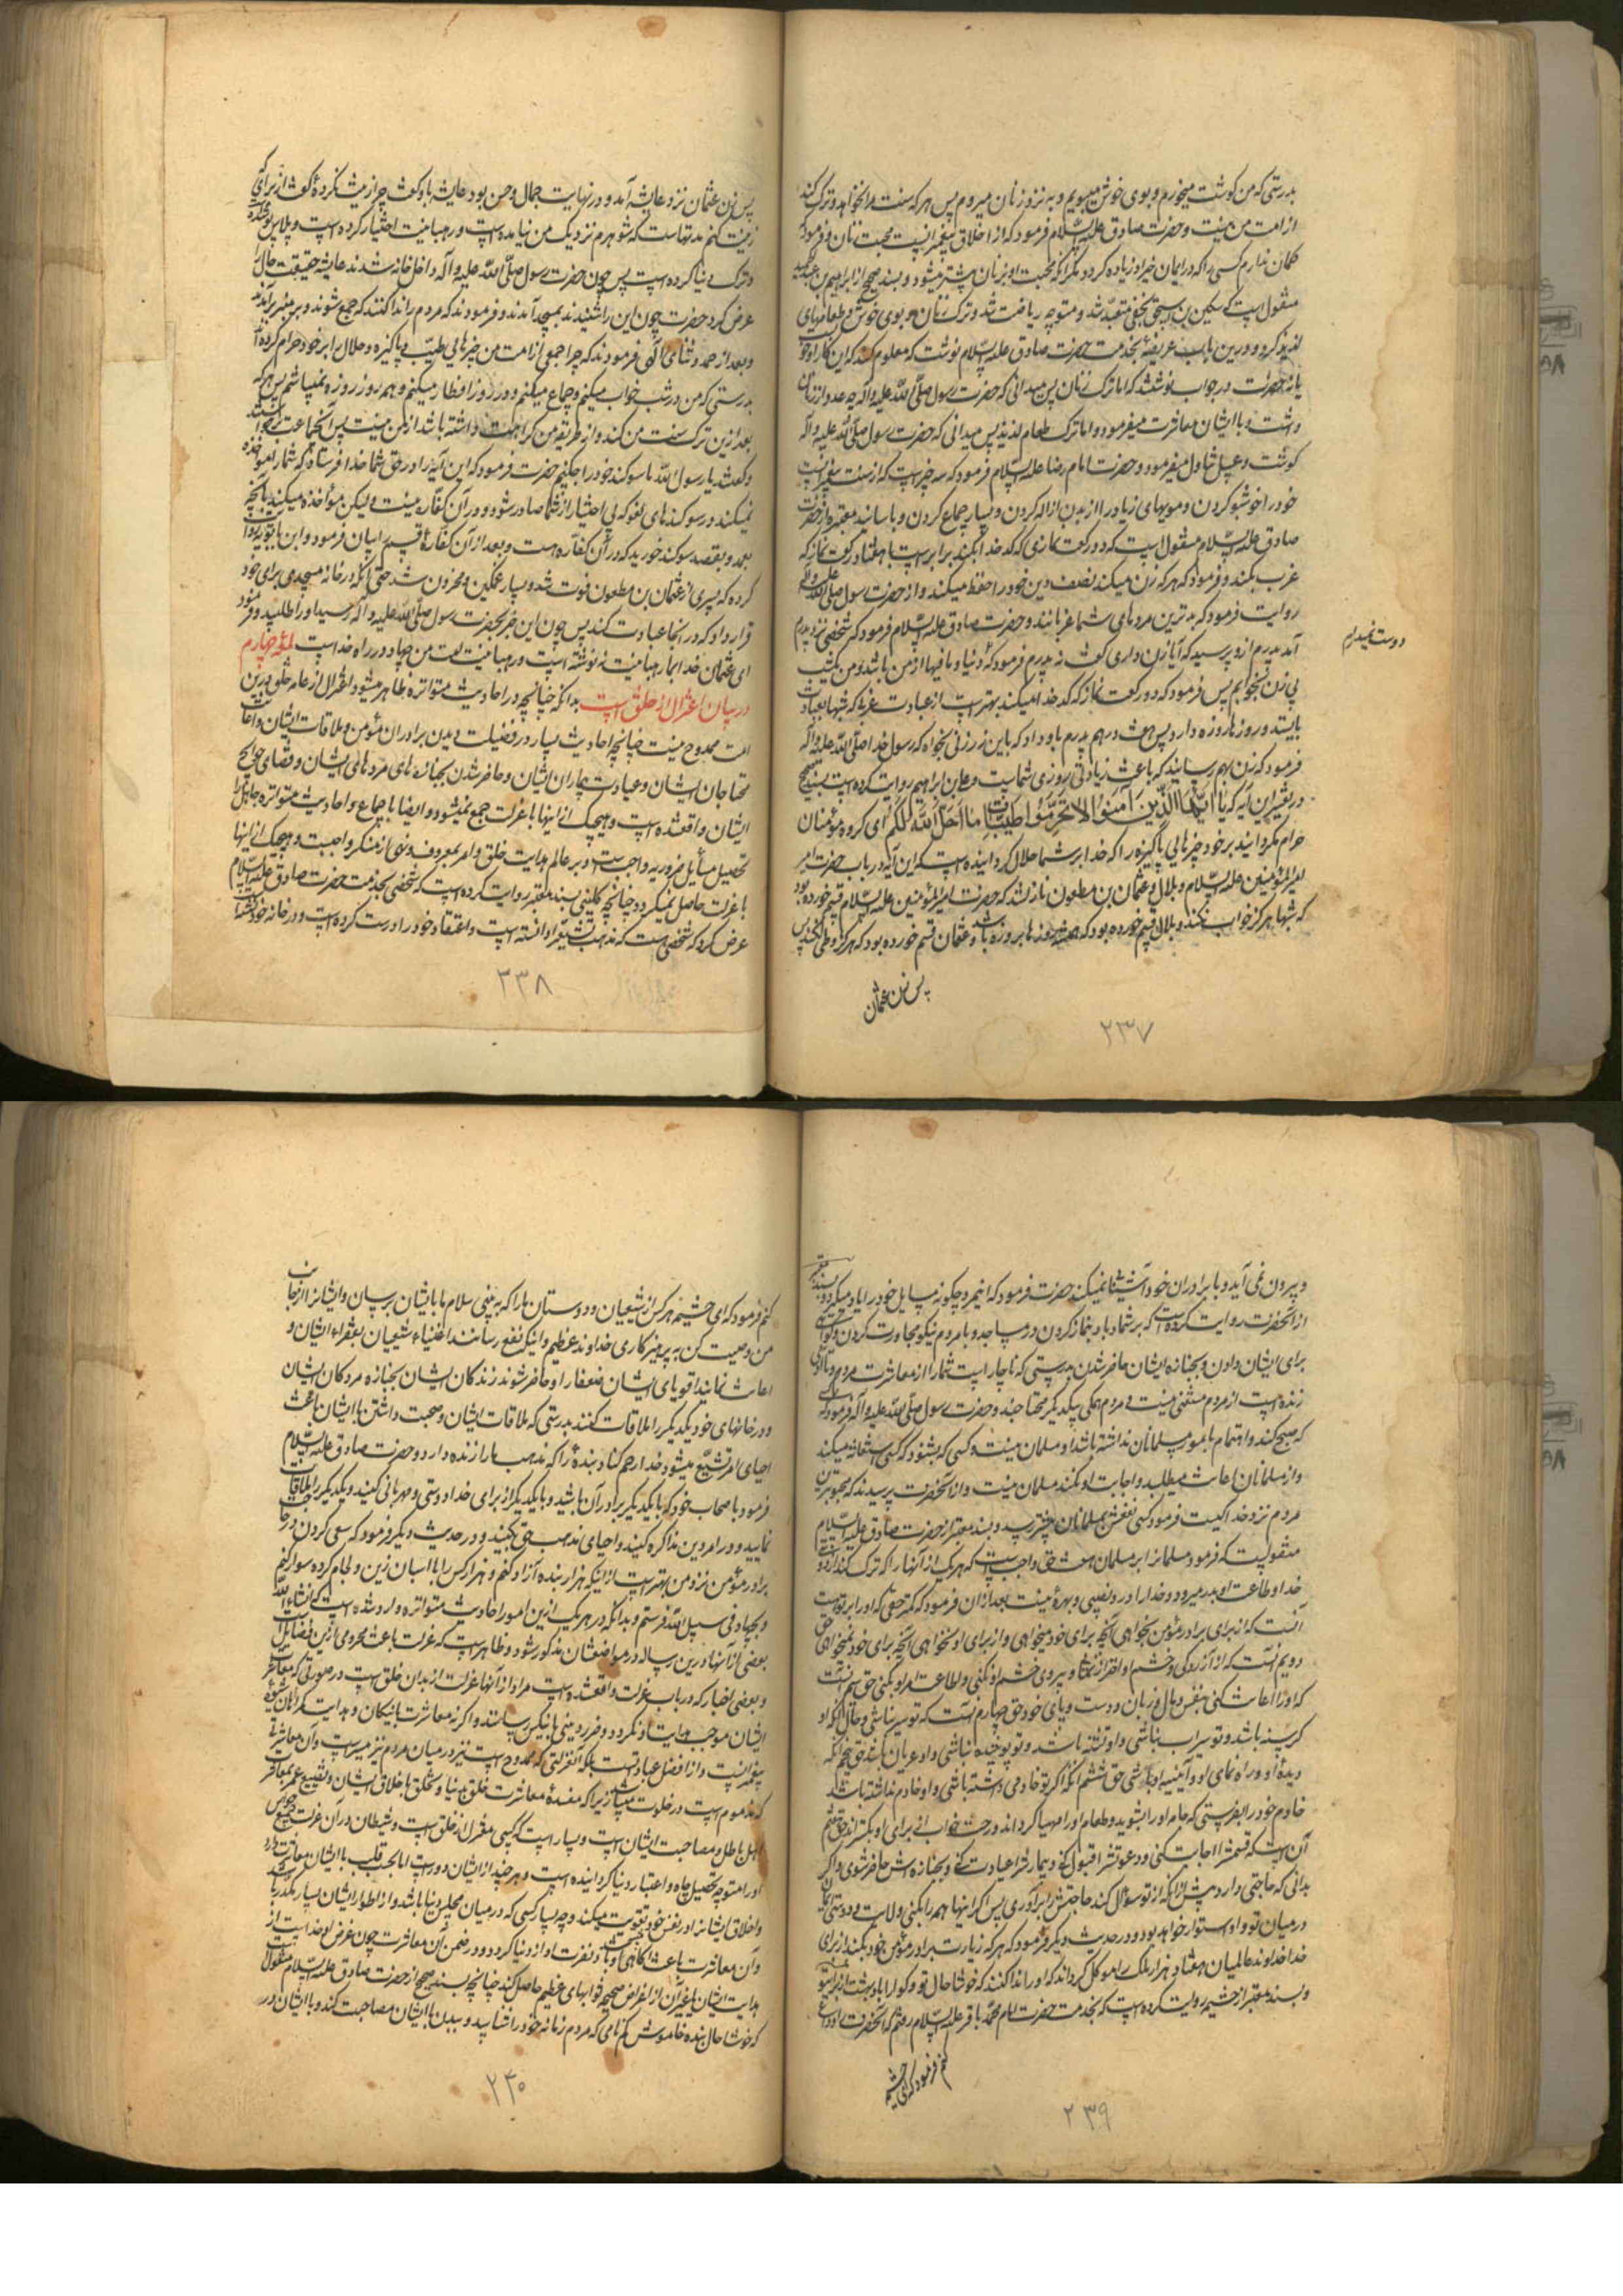 بدرستی که من گوشت میخورم و بوی خوش میبویم و به نزد زنان میروم پس هر که سنت مرا نخواهد و ترک کند
از امت من نیست و حضرت صادق علیه السّلام فرمود که از اخلاق پیغمبرانست محبت زنان و فرمود که
گمان ندارم کسی را که در ایمان خیر او زیاده گردد مگر آنکه محبت او بزنان بیشتر میشود و بسند صحیح از ابراهیم بن عبد الحمید
منقول است که سکین بن اسحق نخعی متعبد شد و متوجه ریاضت شد و ترک زنان و بوی خوش و طعامهای
لذیذ کرد و درین باب عریضهٔ بخدمت حضرت صادق علیه السّلام نوشت که معلوم کند که این کار او خوبست
یا نه حضرت در جواب نوشتند که اما ترک زنان پس میدانی که حضرت رسول صلّی اللّه علیه و آله چه عدد از زنان
داشت و با ایشان معاشرت میفرمود و اما ترک طعام لذیذ پس میدانی که حضرت رسول صلّی اللّه علیه و آله
گوشت و عسل تناول میفرمود و حضرت امام رضا علیه السّلام فرمود که سه چیز است که از سنت پیغمبرانست
خود را خوشبو کردن و مویهای زیاد را از بدن ازاله کردن و بسیار جماع کردن و باسانید معتبره از حضرت
صادق علیه السّلام منقول است که دو رکعت نمازی که کدخدا بکند برابر است با هفتاد رکعت نماز که
عزب بکند و فرمود که هر که زن میکند نصف دین خود را حفظ میکند و از حضرت رسول صلّی اللّه علیه و آله
روایت فرمود که بدترین مردهای شما عزبانند و حضرت صادق علیه السّلام فرمود که شخصی نزد پدرم
آمد پدرم ازو پرسید که آیا زن داری گفت نه پدرم فرمود که دنیا و مافیها از من باشد و من یکشب
دوست نمیدارم
بی زن بخوابم پس فرمود که دو رکعت نماز که کدخدا میکند بهتر است از عبادت عزبی که شبها بعبادت
بایستد و روزها روزه دارد پس هفت درهم پدرم باو داد که باین زر زنی بخواه که رسول خدا صلّی اللّه علیه و آله
فرمود که زن بهم رسانید که باعث زیادتی روزی شماست و علی بن ابراهیم روایت کرده است بسند صحیح
در تفسیر این آیه که یَا أَیُّهَا الَّذِینَ آمَنُوا لَا تُحَرِّمُوا طَیِّبَاتِ مَا أَحَلَّ اللَّهُ لَکُمْ ای گروه مؤمنان
حرام مگردانید بر خود چیزهای پاکیزه را که خدا بر شما حلال گردانیده است که این آیه در باب حضرت امیر
امیر المؤمنین علیه السّلام و بلال و عثمان بن مظعون نازل شد که حضرت امیر المؤمنین علیه السّلام قسم خورده بود
که شبها هرگز خواب نکند و بلال قسم خورده بود که همیشه روزها بروزه باشد و عثمان قسم خورده بود که هرگز وطی نکند پس
پس زن عثمان
۲۳۷
پس زن عثمان نزد عایشه آمد و در نهایت جمال و حسن بود عایشه باو گفت چرا زینت نکردهٔ گفت از برای که
زینت کنم مدتهاست که شوهرم نزدیک من نیامده است و رهبانیت اختیار کرده است و پلاس پوشیده
و ترک دنیا کرده است پس چون حضرت رسول صلّی اللّه علیه و آله داخل خانه شدند عایشه حقیقت حال را
عرض کرد حضرت چون این را شنیدند بمسجد آمدند و فرمودند که مردم را ندا کنند که جمع شوند و بر منبر برآمد
و بعد از حمد و ثنای الهی فرمودند که چرا جمعی از امت من چیزهای طیّب و پاکیزه و حلال را بر خود حرام کرده‌اند
بدرستی که من در شب خواب میکنم و جماع میکنم و در روز افطار میکنم و همه روز روزه نمیباشم پس هر که
بعد ازین ترک سنت من کند و از طریقه من کراهت داشته باشد از من نیست پس آنجماعت برخواستند
و گفتند یا رسول اللّه ما سوگند خوردیم چکنیم حضرت فرمود که این آیه را در حق شما خدا فرستاد که شما را مؤاخذه
نمیکند در سوگندهای لغو که بی اختیار از شما صادر شود و در آن کفاره نیست و لیکن مؤاخذه میکند بآنچه
بعمد و بقصد سوگند خورید که در آن کفاره هست و بعد از آن کفارهٔ قسم را بیان فرمود و ابن بابویه روایت
کرده که پسری از عثمان بن مظعون فوت شد و بسیار غمگین و محزون شد حتی آنکه در خانه مسجدی برای خود
قرار داد که در آنجا عبادت کند پس چون این خبر بحضرت رسول صلّی اللّه علیه و آله رسید او را طلبید و فرمود
ای عثمان خدا بما رهبانیت ننوشته است و رهبانیت امت من جهاد در راه خدا است لمعهٔ چهارم
در بیان اعتزال از خلق است بدانکه چنانچه در احادیث متواتره ظاهر میشود اعتزال از عامه خلق درین
امت ممدوح نیست چنانچه احادیث بسیار در فضیلت دیدن برادران مؤمن و ملاقات ایشان و اعانت
محتاجان ایشان و عیادت بیماران ایشان و حاضر شدن بجنازه‌های مردهای ایشان و قضای حوایج
ایشان واقعشده است و هیچیک از اینها با عزلت جمع نمیشود و ایضا باجماع و احادیث متواتره جاهل را
تحصیل مسائل ضروریه واجبست و بر عالم هدایت خلق و امر بمعروف و نهی از منکر واجبست و هیچیک از اینها
با عزلت حاصل نمیگردد چنانچه کلینی بسند معتبر روایت کرده است که شخصی بخدمت حضرت صادق علیه السّلام
عرض کرد که شخصی هست که مذهب تشیّع را دانسته است و اعتقاد خود را درست کرده است و در خانه خود نشسته
۲۳۸
و بیرون نمی آید و با برادران خود آشنائی نمیکند حضرت فرمود که این مرد چگونه مسایل خود را یاد میگیرد و بسند معتبر
از آنحضرت روایت کرده است که بر شما باد بنماز کردن در مساجد و با مردم نیکو مجاورت کردن و گواهی
برای ایشان دادن و بجنازه ایشان حاضر شدن بدرستی که ناچار است شما را از معاشرت مردم و تا آدمی
زنده است از مردم مستغنی نیست و مردم همگی بیکدیگر محتاجند و حضرت رسول صلّی اللّه علیه و آله فرمود کسی
که صبح کند و اهتمام بامور مسلمانان نداشته باشد او مسلمان نیست و کسی که بشنود که کسی استغاثه میکند
و از مسلمانان اعانت میطلبد و اجابت او نکند مسلمان نیست و از آنحضرت پرسیدند که محبوبترین
مردم نزد خدا کیست فرمود کسی نفعش بمسلمانان بیشتر رسد و بسند معتبر از حضرت صادق علیه السّلام
منقولست که فرمود مسلمان را بر مسلمان هفت حق واجب است که هر یک از آنها را که ترک کند از دوستی
خدا و طاعت او بدر میرود و خدا را درو نصیبی و بهرهٔ نیست بعد از آن فرمود که کمتر حقی که او را بر تو هست
آنست که از برای برادر مؤمن بخواهی آنچه برای خود میخواهی و از برای او نخواهی آنچه برای خود نمیخواهی حق
دویم آنست که از آزردگی و خشم او احتراز نمائی و پیروی خشم او نکنی و اطاعت امر او بکنی حق سیم آنست
که او را اعانت کنی بنفس و مال و زبان و دست و پای خود حق چهارم آنست که تو سیر نباشی و حال آنکه او
گرسنه باشد و تو سیراب نباشی و او تشنه باشد و تو پوشیده نباشی و او عریان باشد حق پنجم آنکه
دیدهٔ او و راه نمای او و آئینه او باشی حق ششم آنکه اگر تو خادمی داشته باشی و او خادم نداشته باشد
خادم خود را بفرستی که جامه او را بشوید و طعام او را مهیا گرداند و رخت خواب از برای او بگستراند حق هفتم
آن است که قسمش را اجابت کنی و دعوتش را قبول کنی و بیمارش را عیادت کنی و بجنازه اش حاضر شوی و اگر
بدانی که حاجتی دارد پیش از آنکه از تو سؤال کند حاجتش را برآوری پس اگر اینها همه را بکنی ولایت و دوستی ایمان
در میان تو و او استوار خواهد بود و در حدیث دیگر فرمود که هر که زیارت برادر مؤمن خود بکند از برای
خدا خداوند عالمیان هفتاد هزار ملک را موکل گرداند که او را ندا کنند که خوشا حال تو و گوارا باد بهشت از برای تو
و بسند معتبر از خثیمه روایت کرده است که بخدمت حضرت امام محمّد باقر علیه السّلام رفتم که آنحضرت را وداع
کنم فرمود که ای خثیمه
۲۳۹
کنم فرمود که ای خثیمه هر کس از شیعیان و دوستان ما را که به بینی سلام ما بایشان برسان و ایشان را از جانب
من وصیت کن به پرهیزکاری خداوند عظیم و اینکه نفع رسانند اغنیاء شیعیان بفقراء ایشان و
اعانت نمایند اقویای ایشان ضعفا را و حاضر شوند زندگان ایشان بجنازه مردگان ایشان
و در خانهای خود یکدیگر را ملاقات کنند بدرستی که ملاقات ایشان و صحبت داشتن با ایشان باعث
احیای امر تشیّع میشود خدا رحم کناد بندهٔ را که مذهب ما را زنده دارد و حضرت صادق علیه السّلام
فرمود باصحاب خود که با یکدیگر برادر آن باشد و با یکدیگر از برای خدا دوستی و مهربانی کنید و یکدیگر را ملاقات
نمایید و در امر دین مذاکره کنید و احیای مذهب حق بکنید و در حدیث دیگر فرمود که سعی کردن در حاجت
برادر مؤمن نزد من بهتر است از اینکه هزار بنده آزاد کنم و هزار کس را با اسبان زین و لجام کرده سوار کنم
و بجهاد فی سبیل اللّه فرستم و بدانکه در هر یک ازین امور احادیث متواتره وارد شده است که انشاء اللّه
بعضی از آنها درین رساله در مواضعشان مذکور شود و ظاهر است که عزلت باعث محرومی ازین فضایل است
و بعضی اخبار که در باب عزلت واقعشده است مراد از آنها عزلت از بدان خلق است در صورتی که معاشرت
ایشان موجب هدایت او نگردد و ضرر دینی باینکس رسانند و اگر نه معاشرت با نیکان و هدایت گمراهان شیوه
پیغمبرانست و از افضل عباداتست بلکه آنعزلتی که ممدوح است نیز در میان مردم نیز میسر است و آن معاشرتی
که مذموم است در خلوت میباشد زیرا که مفسدهٔ معاشرت خلق دنیا و تخلق باخلاق ایشان و تضییع عمر بمعاشرت
اهل باطل و مصاحبت ایشان است و بسیار است که کسی معتزل از خلق است و شیطان در آن عزلت جمیع حواس
او را متوجه تحصیل جاه و اعتبار دنیا گردانیده است و هر چند از ایشان دور است اما بحسب قلب با ایشان معاشرت دارد
و اخلاق ایشانرا در نفس خود تقویت میکند و چه بسیار کسی که در میان مجلس دنیا باشد و از اطوار ایشان بسیار مکدر باشد
و آن معاشرت باعث آگاهی او باشد و نفرت او از دنیا گردد و در ضمن آن معاشرت چون غرض او خداست از
هدایت ایشان یا غیر آن از اغراض صحیحه ثوابهای عظیم حاصل کند چنانچه بسند صحیح از حضرت صادق علیه السّلام منقول است
که خوشا حال بنده خاموش گم نامی که مردم زمانه خود را شناسد و ببدن با ایشان مصاحبت کند و با ایشان در
۲۴۰